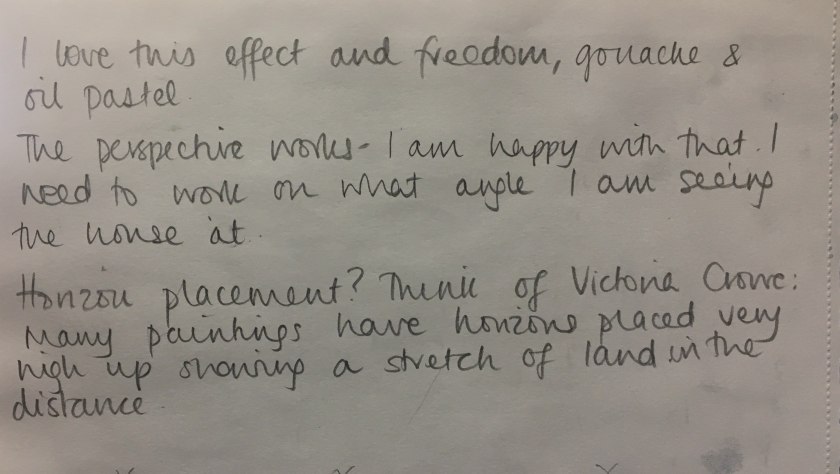 I love this effect and freedom, gouache &
oil pastel
The perspective works - I am happy with that. I
need to work on what angle I am seeing
the house at.
Horizon placement? Think of Victoria Crowe:
Many paintings have horizons placed very
high up showing a stretch of land in the
distance